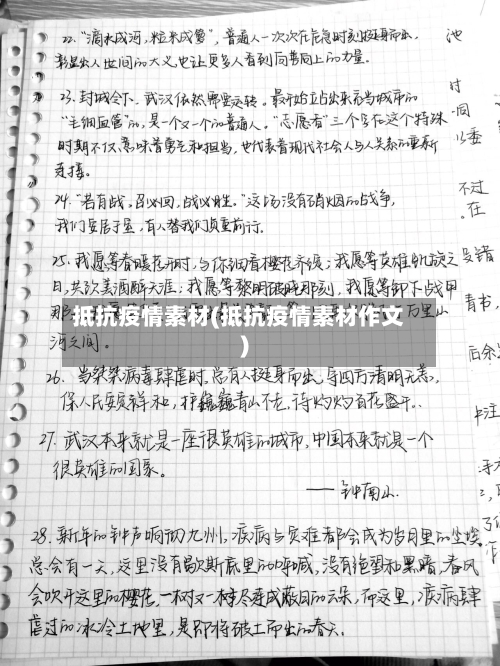 22. "滴水成河,粒米成箩",普通人一次次在危急时刻挺身而出,
彰显出人世间的大义,也让更多人看到同舟向上的力量。
23. 封城令下,武汉依然需要运转。最开始立出来充当城市的
"毛细血管"的,是一个又一个的普通人。"志愿者"三个字在这个特殊
时期不仅意味着勇气和担当,也代表着现代社会人与人关系的重新
连接。
24. "若有战,召必回,战必胜。"这场没有硝烟的战争,
我们安居于室,有人替我们负重前行。
25. 我愿等春暖花开时,与你细看樱花齐绽;我愿等英雄凯旋之
日,共饮美酒醉天涯;我愿等黎明破晓那刻,我愿等卸下战甲
那
万里山
河之间。
抵抗疫情素材(抵抗疫情素材作文
)
26. 当荣荣病毒肆虐时,总有人挺身而出,守四方清明无恙,
保人民安定祥和,护巍巍青山不老,待灼灼百花盛开。
27. 武汉本来就是一座很英雄的城市,中国本来就是一个
很英雄的国家。
——钟南山
28. 新年的钟声响彻九州,疾病与灾难都会成为岁月里的尘埃
总会有一天,这里没有歇斯底里的呼喊,没有绝望和黑暗,春风
会吹开这里的樱花,一树又一树尽连成蔽日的云朵,而这里,疾病肆
虐过的冰冷土地里,是即将破土而出的春天。
池
时
·同
以委
不过
。在
没错
青书,
后余